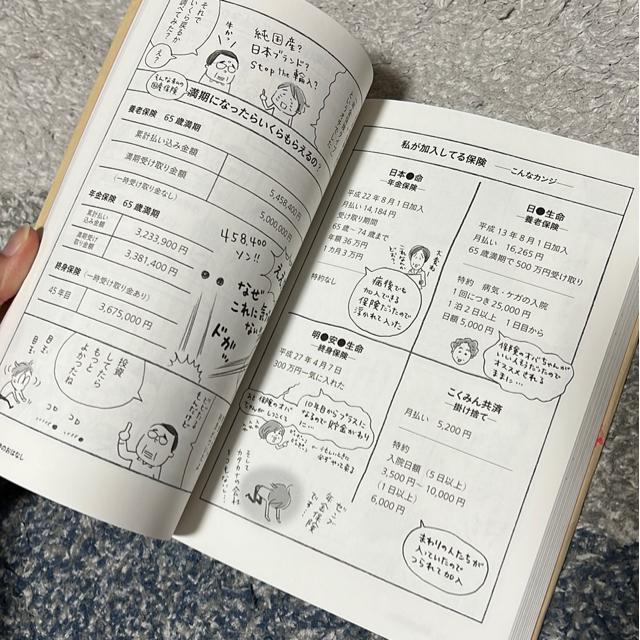 私が加入してる保険
こんなカンジ
日●生命
―養老保険―
平成 13 年 8 月 1 日加入
月払い 16,265 円
65 歳満期で 500 万円受け取り
特約 病気・ケガの入院
1 回につき 25,000 円
1 泊 2 日以上 1 日目から
日額 5,000 円
保険のオバちゃんが
いい人そうだったので
オススメされる
ままに…
日本●命
―年金保険―
平成 22 年 8 月 1 日加入
月払い 14,184 円
受け取り期間
65 歳～ 74 歳まで
年額 36万円
1 カ月 3 万円
特約なし
病後でも
加入できる
保険だったので
浮かれて入った
こくみん共済
―掛け捨て―
月払い 5,200 円
特約
入院日額（5 日以上）
3,500 円～ 10,000 円
（1 日以上）
6,000 円
まわりの人たちが
入っていたので
つられて加入
明●安●生命
―終身保険―
平成 27 年 4 月 7 日
300 万円一気に入れた
10年目からプラスに
なるので貯金がわり
に…
純国産?
日本ブランド?
Stop the 輸入?
牛かっ
それで
いくら戻るか
調べてみた?
え?
満期になったらいくらもらえるの?
養老保険 65 歳満期
累計払い込み金額
5,458,400 円
満期受け取り金額
5,000,000 円
（一時受け取り金なし）
458,400
ソン!!
年金保険 65 歳満期
累計払い
込み金額
3,233,900 円
満期受け
取り金額
3,381,400 円
終身保険（一時受け取り金あり）
45 年目
3,675,000 円
なぜ
これに
ドガッ
投資
してたら
もっと
よかったね
コロ
コロ
のおはなし